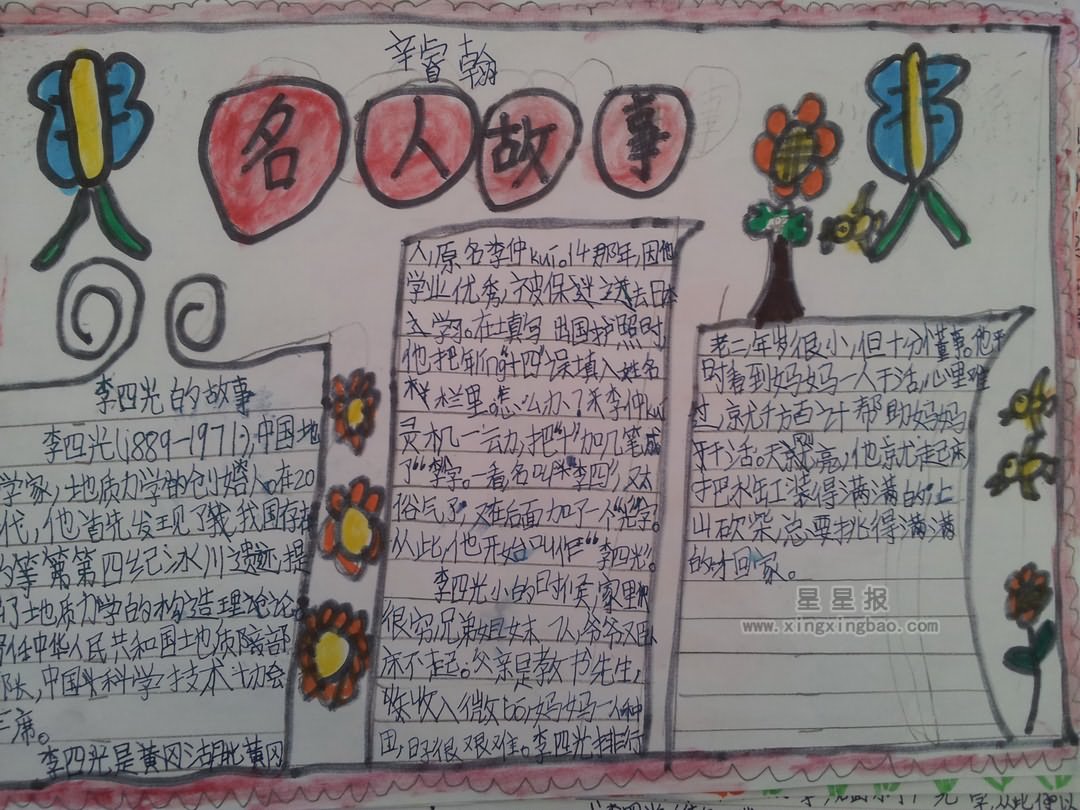 辛睿翰
名人故事
李四光的故事
李四光(1889-1971),中国地
学家,地质力学的创始人。在20
代,他首先发现了我国存在
第四纪冰川遗迹,提
了地质力学的构造理论
任中华人民共和国地质部部
长,中国科学技术协会
主席。
李四光是黄冈湖北黄冈
人,原名李仲kui。14那年,因他
学业优秀,被保送去日本
入学习。在填写出国护照时,
他把年ling“十四”误填入姓名
栏里。怎么办?李仲kui
灵机一动,把“十”加几笔成
了“李”字。一看,名叫“李四”,又太
俗气了,在后面加了一个“光”字。
从此,他开始叫作“李四光”。
李四光小的时候家里
很穷,兄弟姐妹7人,爷爷又卧
床不起。父亲是教书先生,
收入微bo,妈妈一人种
田,日子很艰难。李四光排行
老二,年岁很小,但十分懂事。他平
时看到妈妈一人干活,心里难
过,就千方百计帮助妈妈
干活。天亮,他就起床
把水缸装得满满的;上
山砍柴,总要挑得满满
的才回家。
星星报
www.xingxingbao.com